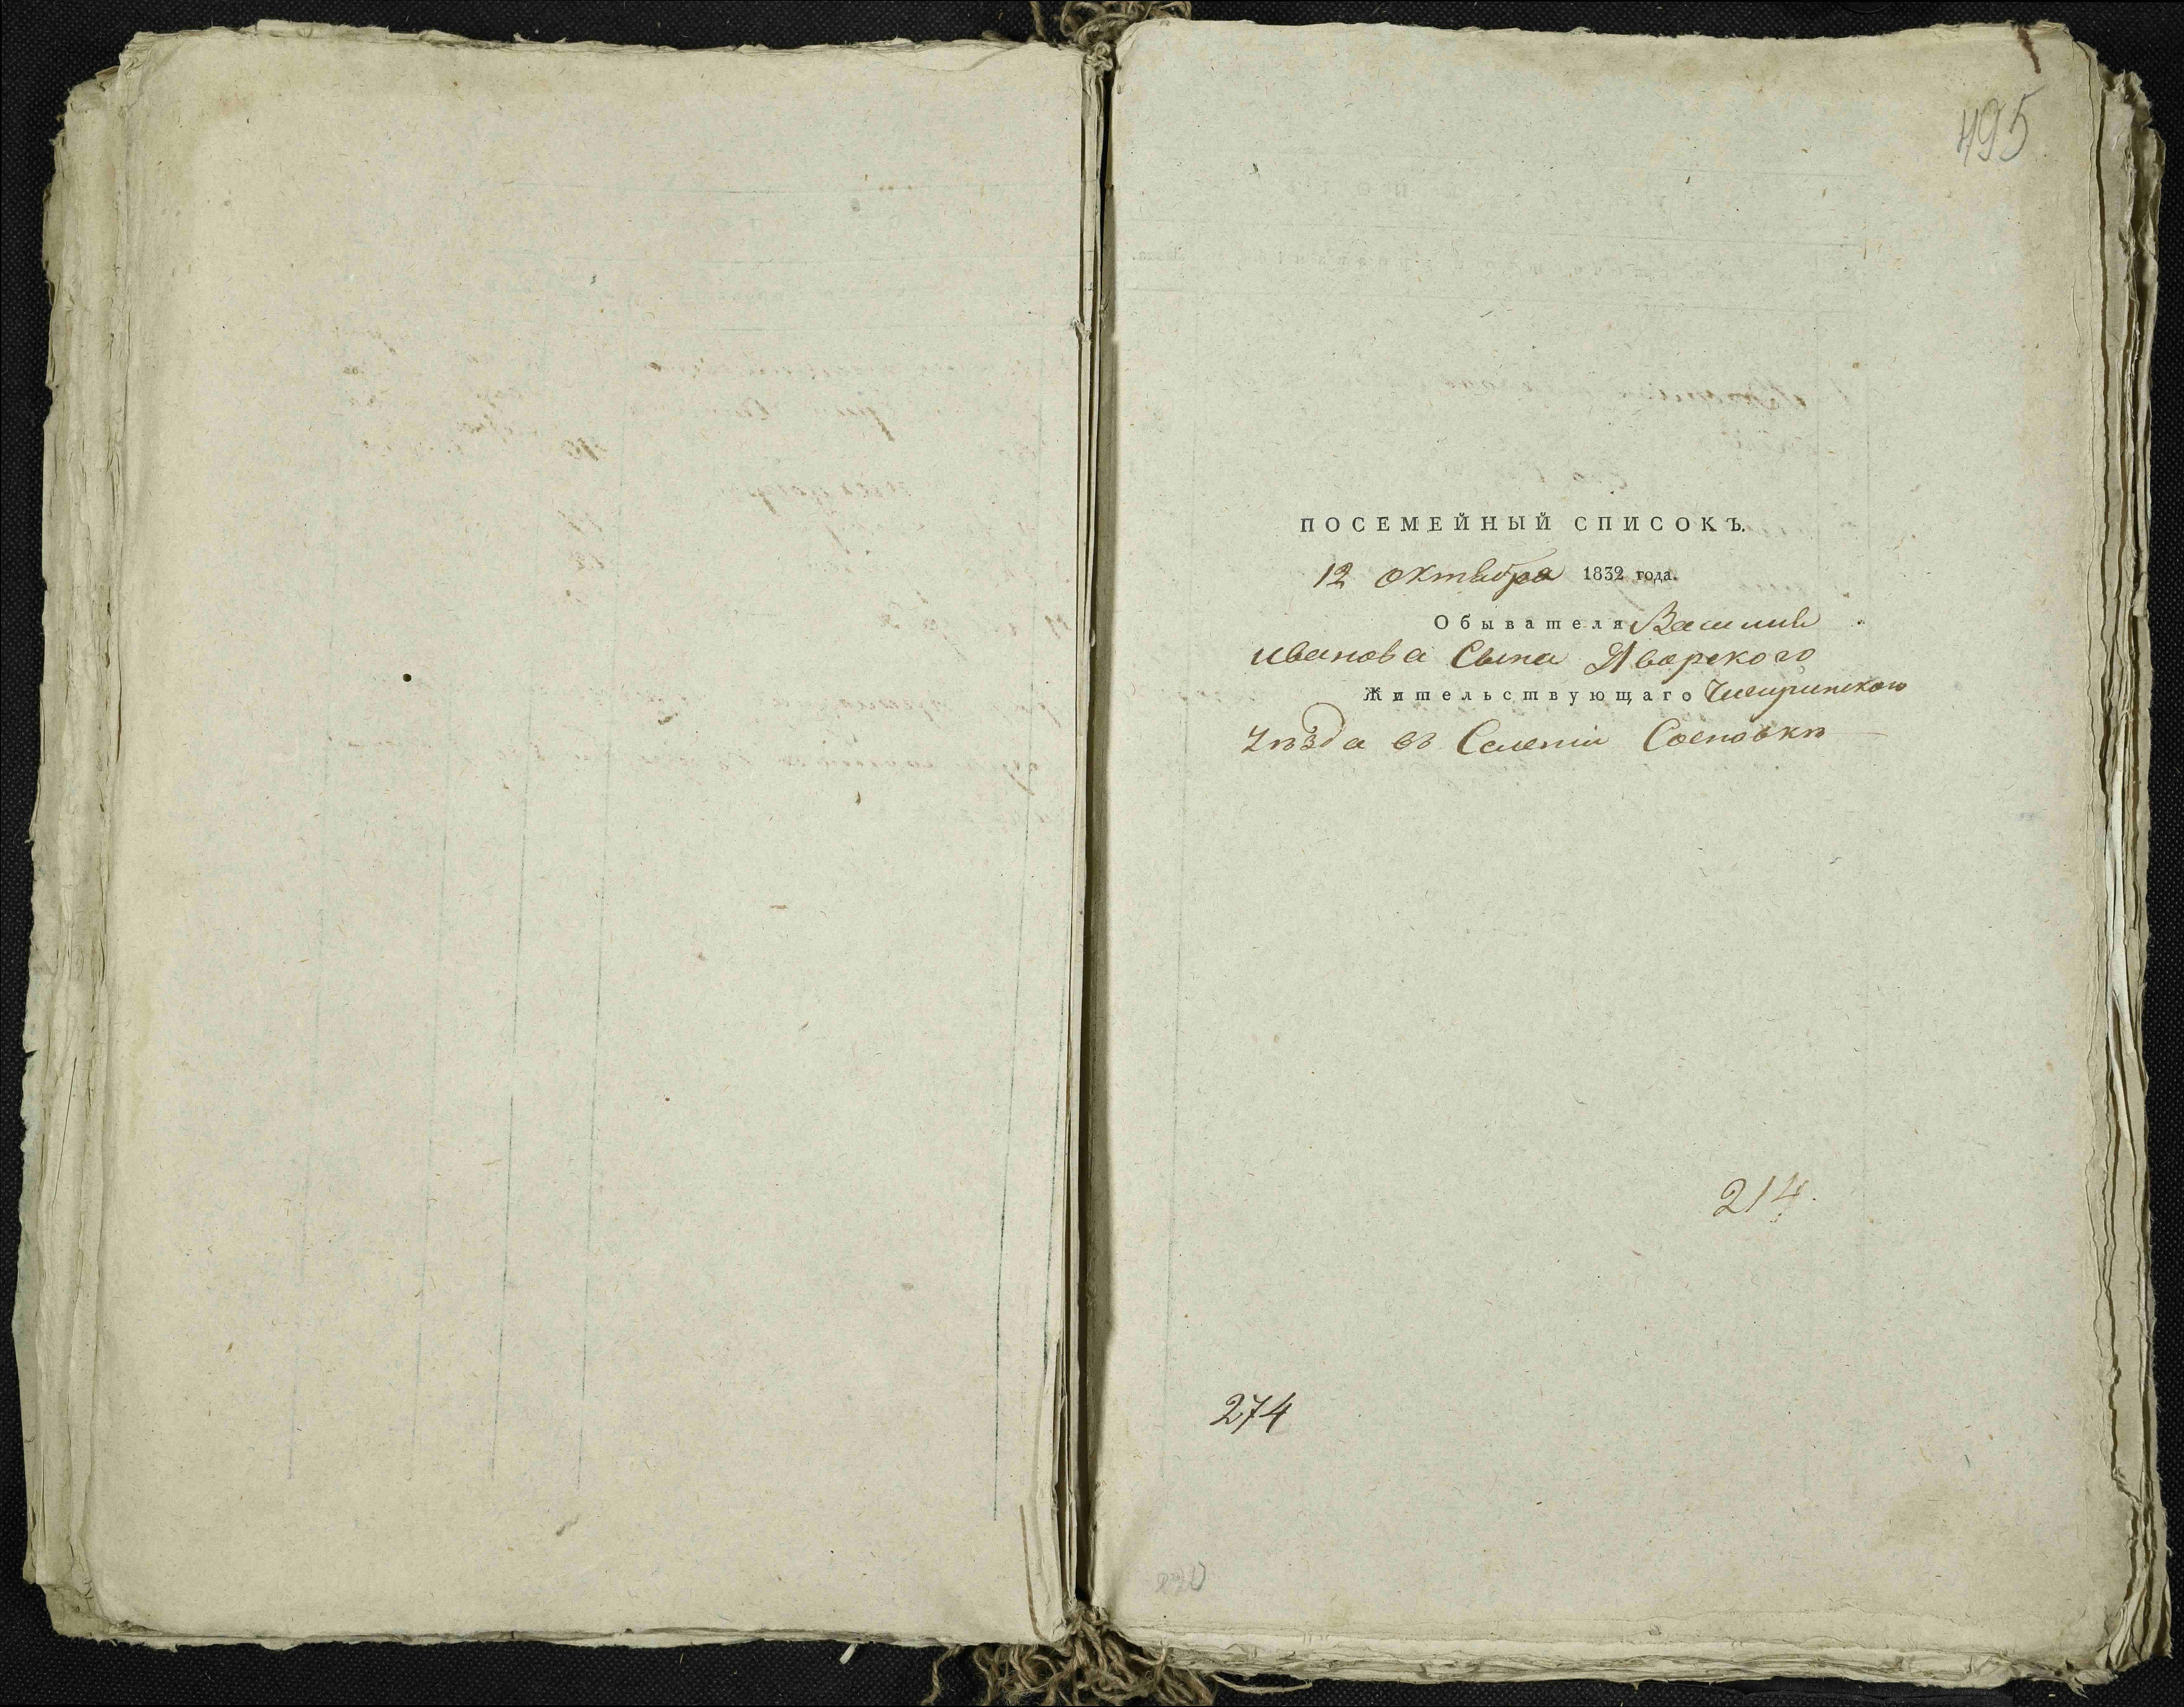 495
ПОСЕМЕЙНЫЙ СПИСОКЪ.
12 октября 1832 года.
Обывателя Василия
иванова Сына Яворского
Жительствующаго Чигиринского
Уѣзда въ Селеніи Сосновкѣ
214.
274